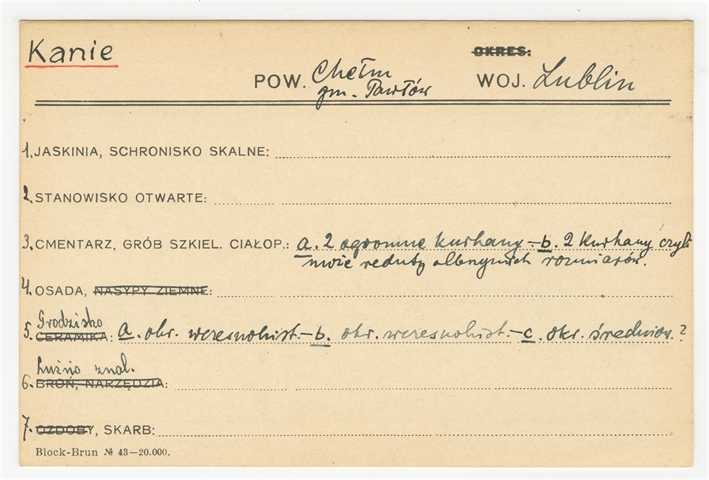 Kanie
OKRES:
POW. Chełm WOJ. Lublin
gm. Pawłów
1. JASKINIA, SCHRONISKO SKALNE:
2. STANOWISKO OTWARTE:
3. CMENTARZ, GRÓB SZKIEL. CIAŁOP.: a. 2 ogromne kurhany - b. 2 kurhany czyli
może reduty olbrzymich rozmiarów.
4. OSADA, NASYPY ZIEMNE:
Grodzisko
5. CERAMIKA: a. okr. wczesnohist. - b. okr. wczesnohist. - c. okr. średniow.?
Luźno znal.
6. BROŃ, NARZĘDZIA:
7. OZDOBY, SKARB:
Block-Brun № 43—20.000.